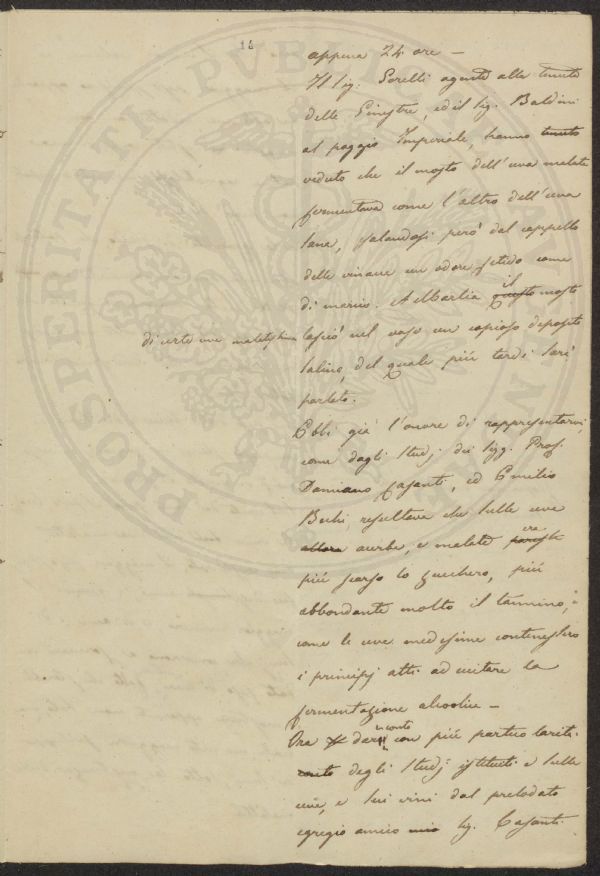 14
appena 24 ore —
Il Sig: Sorelli agente alla tenuta
delle Ginestre, ed il Sig. Baldini
al poggio Imperiale, hanno tenuto
veduto che il mosto dell'uva malata
fermentava come l'altro dell'uva
sana, esalandosi però dal cappello
delle vinacce un odore fetido come
di marcio. A Marlia questo il mosto
di certe uve malatissime
lasciò nel vaso un copioso deposito
salino, del quale più tardi sarà
parlato.
Ebbi già l'onore di rappresentarvi,
come dagli Studj dei Sigg. Prof.
Damiano Casanti, ed Emilio
Bechi, resultava che sulle uve
allora acerbe, e malate era
più scarso lo zucchero, più
abbondante molto il tannino, e
come le uve medesime contenessero
i principj atti ad eccitare la
fermentazione alcoolica —
Ora darò conto con più particolarità
conto degli Studj istituiti e sulle
uve, e sui vini dal prelodato
egregio amico mio Sig. Casanti
PROSPERITATI PVBLICAE